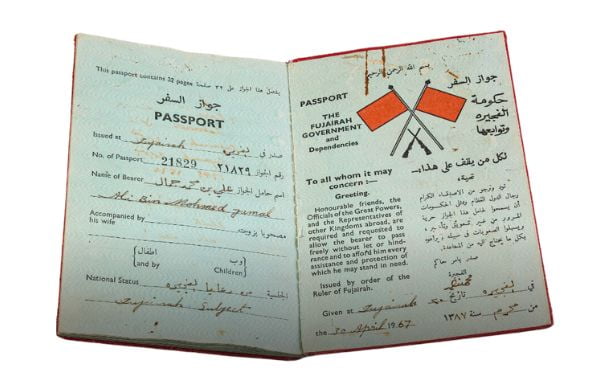 This passport contains 32 pages يشمل هذا الجواز على ٣٢ صفحة
جواز السفر
PASSPORT
Issued at Fujairah الفجيره صدر في
No. of Passport 21829 ٢١٨٢٩ رقم الجواز
Name of Bearer علي بن محمد جمال اسم حامل الجواز
Ali Bin Mohmed Jumal
Accompanied by
his wife
مصحوبا بزوجته
اطفال وب
and by Children
National Status من رعايا الفجيره الجنسية
Fujairah Subject
بسم الله الرحمن الرحيم
جواز السفر
حكومة
الفجيره
وتوابعها
PASSPORT
THE
FUJAIRAH
GOVERNMENT
and
Dependencies
To all whom it may
concern :—
Greeting.
Honourable friends, the
Officials of the Great Powers,
and the Representatives of
other Kingdoms abroad, are
required and requested to
allow the bearer to pass
freely without let or hind-
rance and to afford him every
assistance and protection of
which he may stand in need.
Issued by order of the
Ruler of Fujairah.
Given at Fujairah
the 30 April 1967
لكل من يقف على هذا،—
تحية،
نود ونرجو من الاصدقاء الكرام
ورجال الدول العظام وذوي الحكومات
أن يسمحوا لحامل هذا الجواز حرية
المرور من غير تعويق وتأخير،
بكل ما يحتاج اليه من المساعدة.
صدر بأمر حاكم
الفجيرة
الفجيره تاريخ
من محرم سنة ١٣٨٧